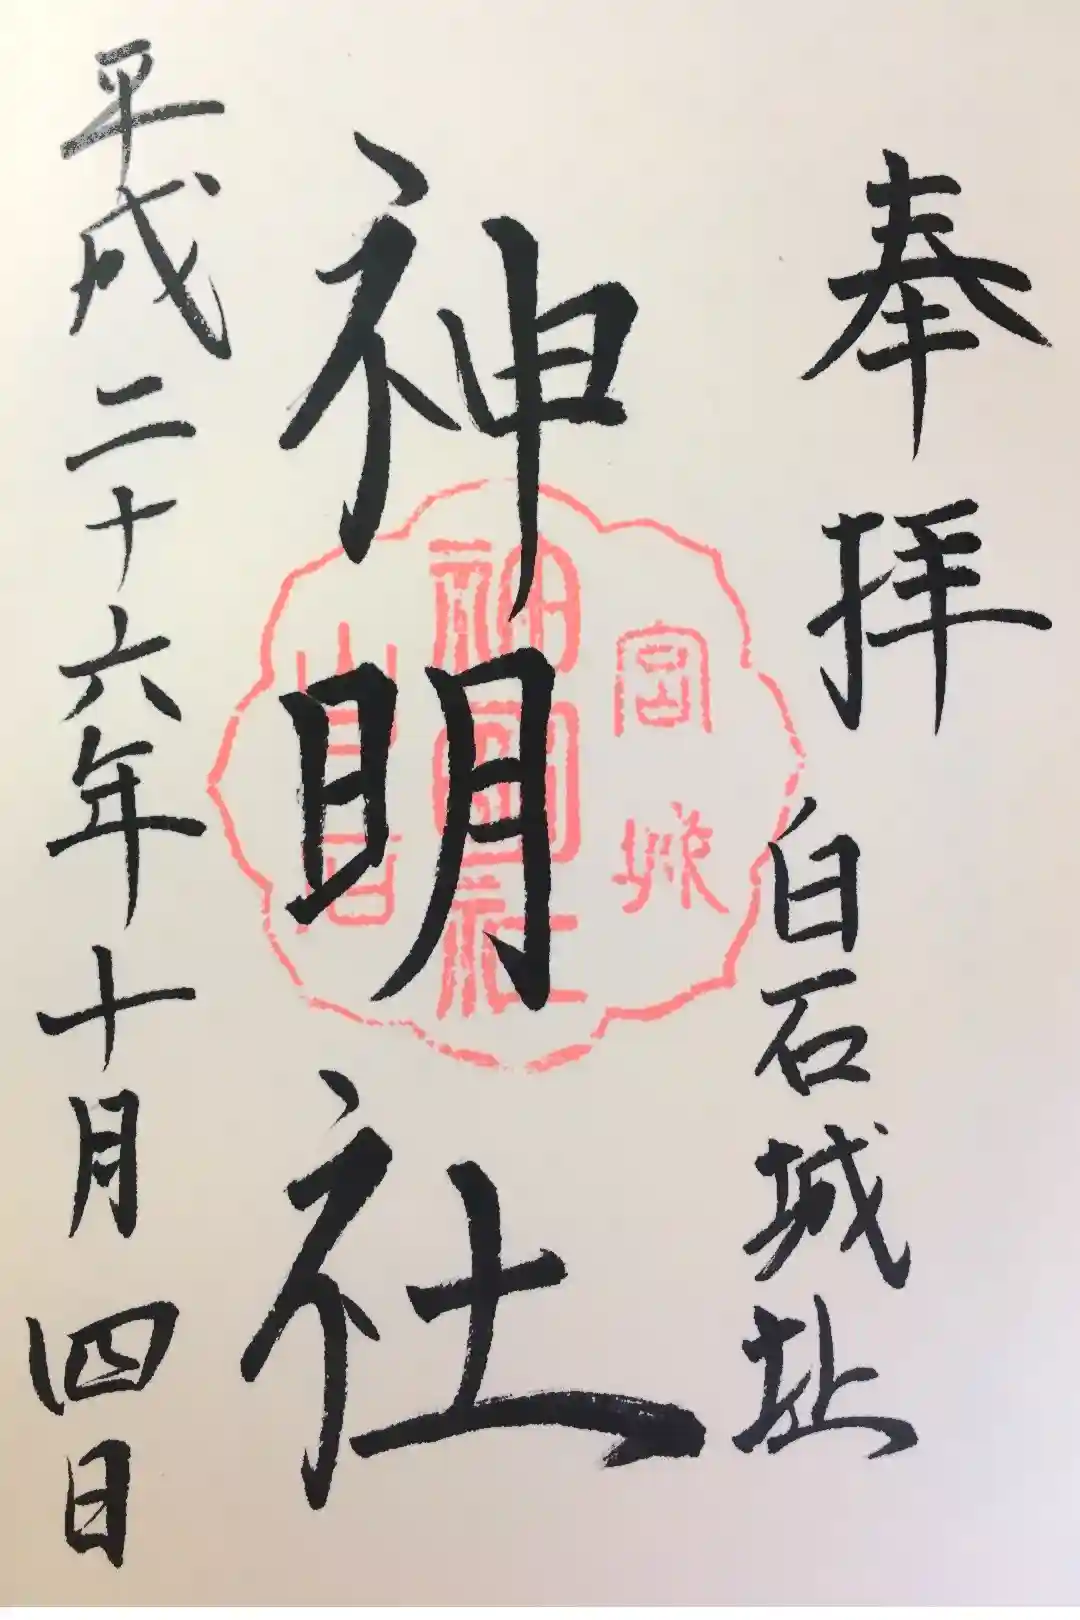 奉拝 白石城址
神明社
平成二十六年十月四日
宮城
神明社
白石